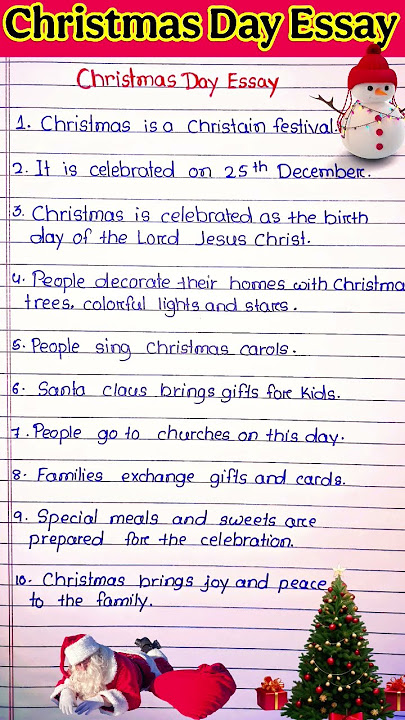 Christmas Day Essay
Christmas Day Essay
1. Christmas is a Christain festival.
2. It is celebrated on 25th December.
3. Christmas is celebrated as the birth
day of the Lord Jesus Christ.
4. People decorate their homes with Christma
trees, colorful lights and stars.
5. People sing Christmas carols.
6. Santa claus brings gifts fore kids.
7. People go to churches on this day.
8. Families exchange gifts and cards.
9. Special meals and sweets are
prepared fore the celebration.
10. Christmas brings joy and peace
to the family.